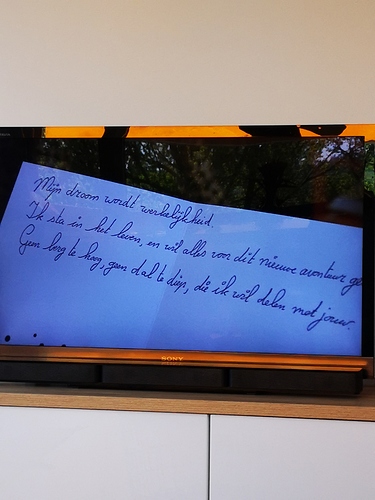 Mijn droom wordt werkelijkheid.
Ik sta in het leven, en wil alles voor dit nieuwe avontuur ge
Geen berg te hoog, geen dal te diep, die ik wil delen met jouw.
SONY